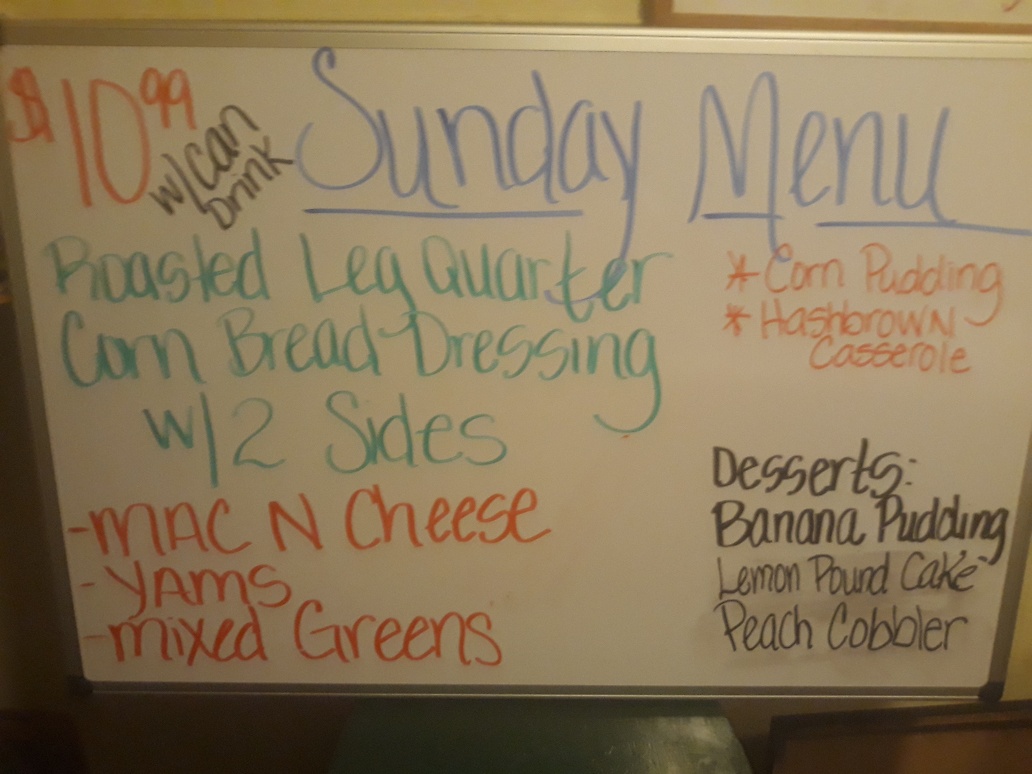 $10.99
w/can
Drink
Sunday Menu
Roasted Leg Quarter
Corn Bread Dressing
w/2 Sides
-MAC N Cheese
-YAMS
-mixed Greens
* Corn Pudding
* HashbrowN
Casserole
Desserts:
Banana Pudding
Lemon Pound Cake
Peach Cobbler